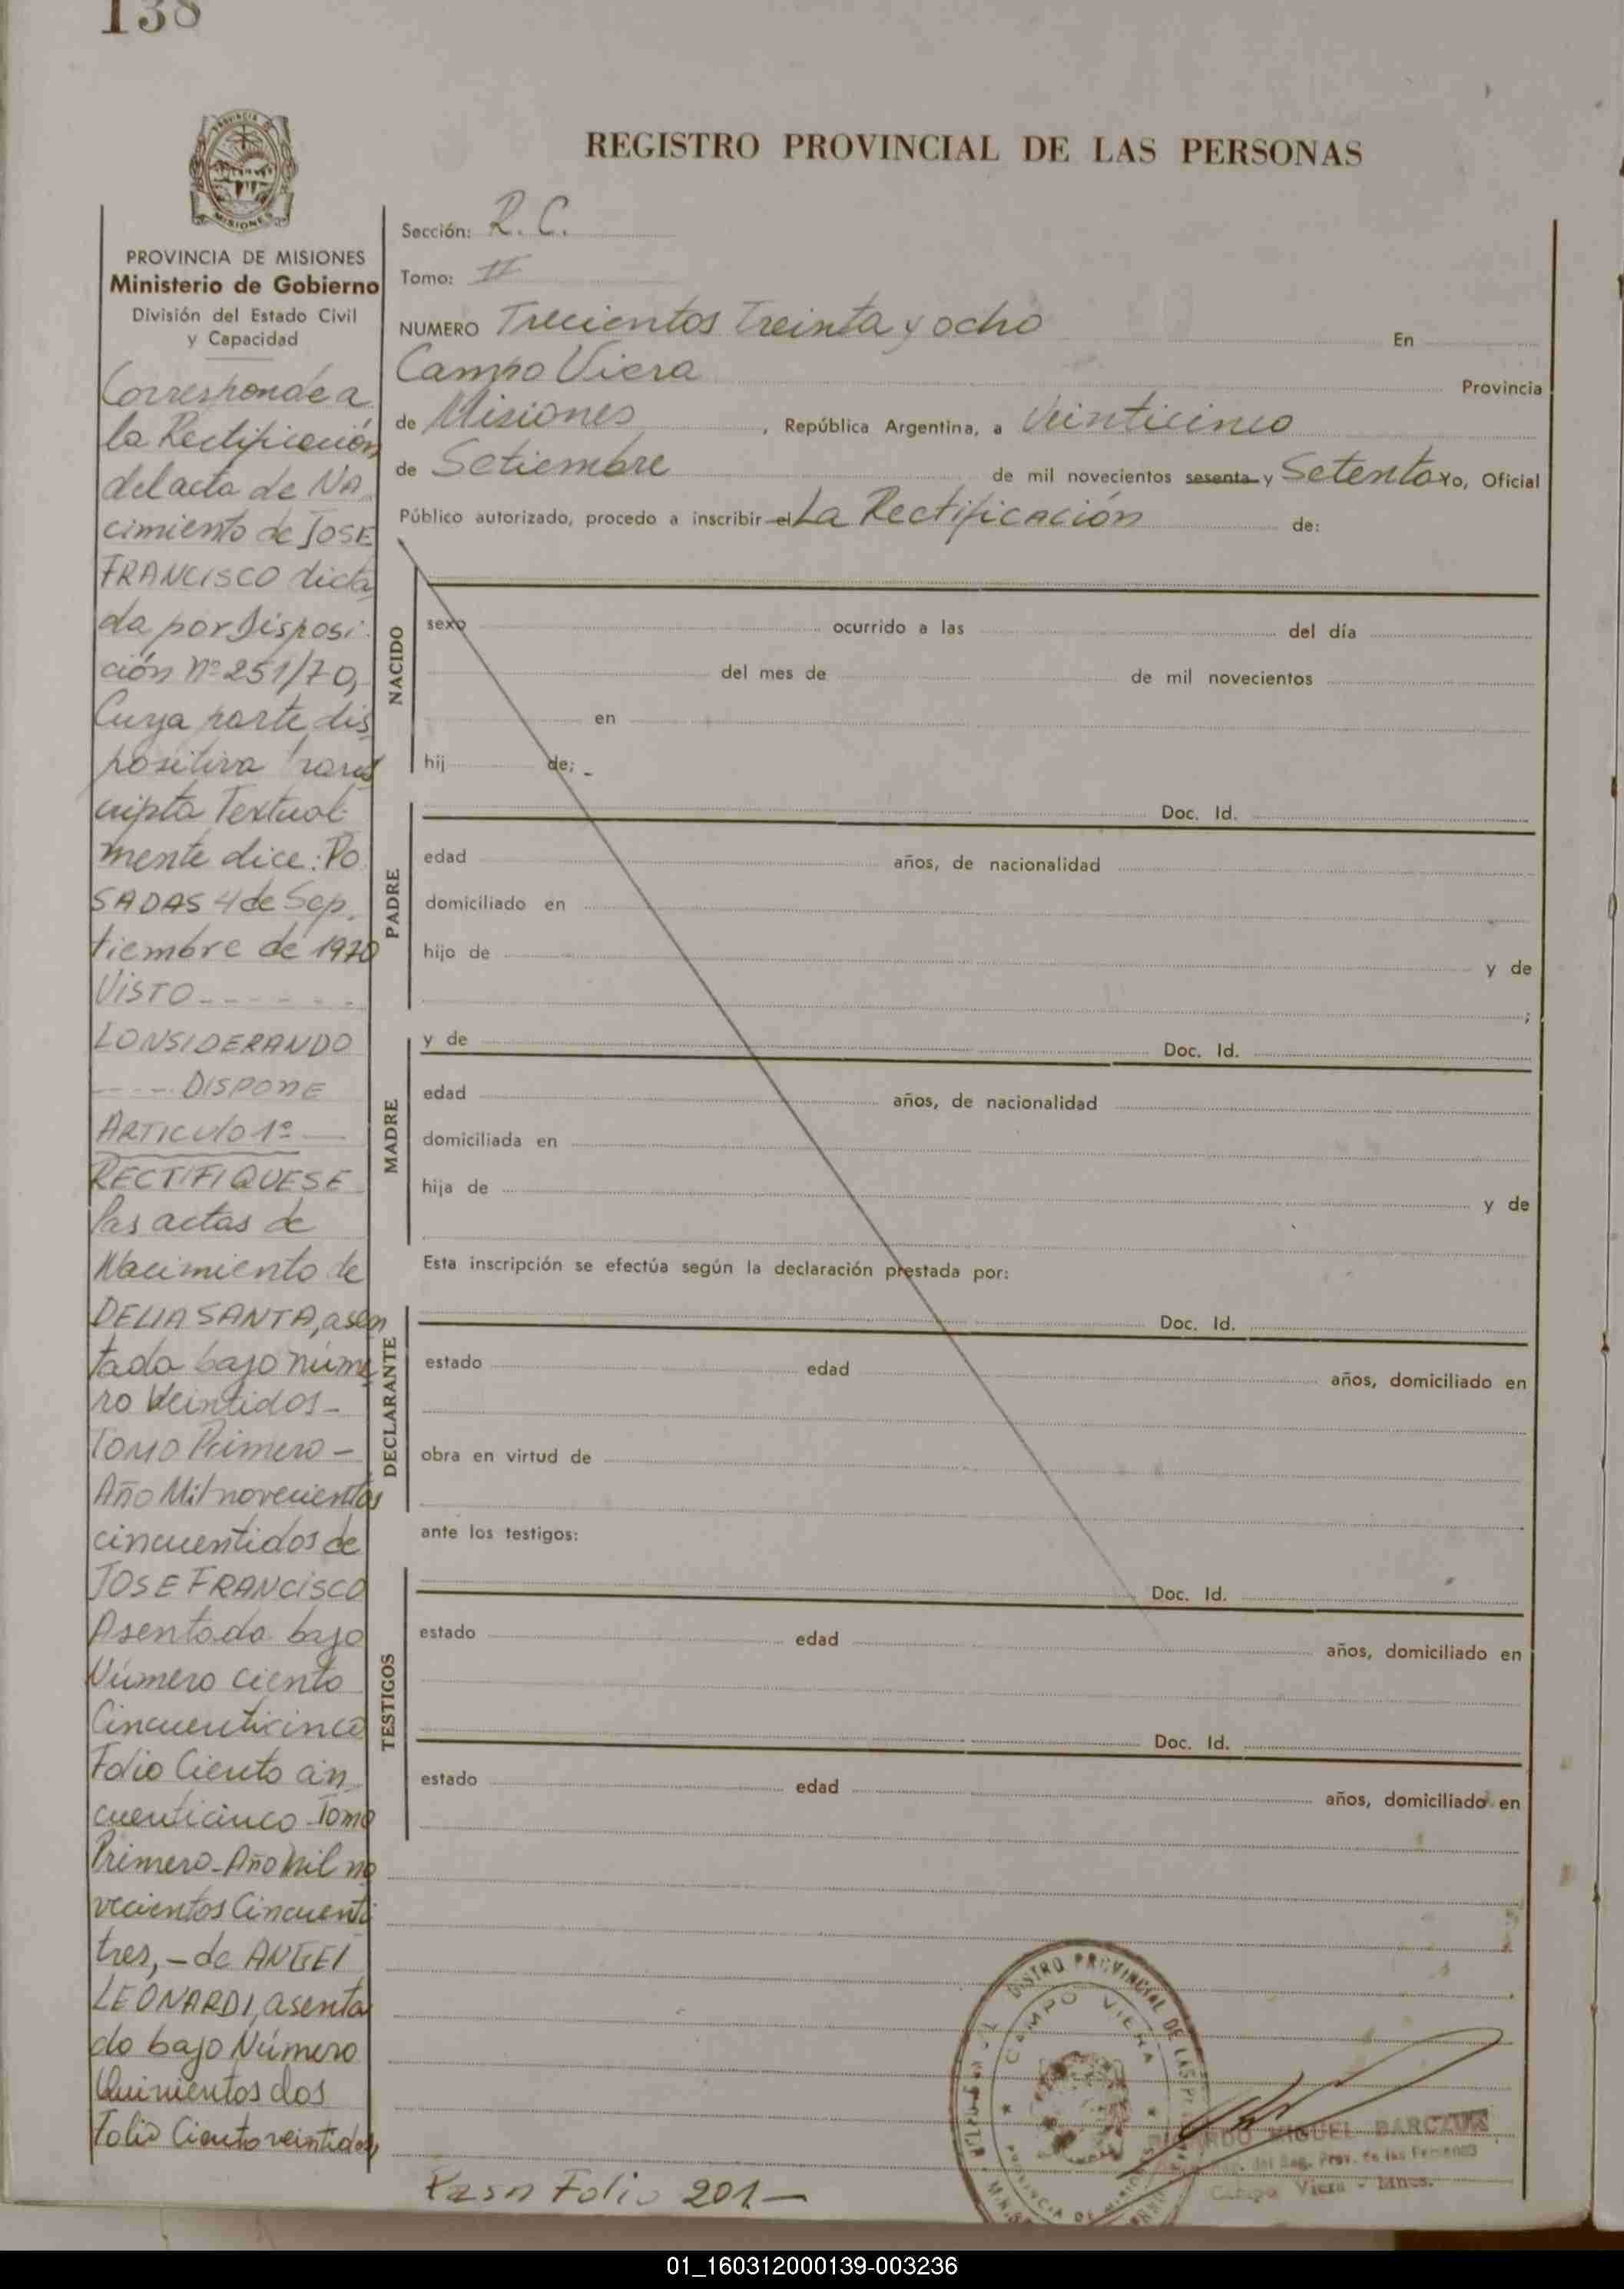 138
REGISTRO PROVINCIAL DE LAS PERSONAS
PROVINCIA DE MISIONES
Ministerio de Gobierno
División del Estado Civil
y Capacidad
Corresponde a
la Rectificación
del acta de Na
cimiento de JOSE
FRANCISCO dicta
da por Disposi
ción Nº 251/70,
Cuya parte dis
positiva trans
cripta Textual
mente dice: Po
SADAS 4 de Sep.
tiembre de 1970
VISTO - - - - - -
CONSIDERANDO
- - - - DISPONE
ARTICULO 1º —
RECTIFIQUESE
las actas de
Nacimiento de
DELIA SANTA, asen
tada bajo núme
ro Veintidos -
Tomo Primero -
Año Mil novecientos
cincuentidos de
JOSE FRANCISCO
Asentada bajo
Número ciento
Cincuenticinco
Folio Ciento cin
cuenticinco Tomo
Primero - Año Mil no
vecientos Cincuenti
tres, - de ANGEL
LEONARDI, asenta
do bajo Número
Quinientos dos
Folio Ciento veintidos
Sección: R. C.
Tomo: II
NUMERO Trecientos Treinta y ocho En
Campo Viera Provincia
de Misiones, República Argentina, a Veinticinco
de Setiembre de mil novecientos sesenta y Setenta yo, Oficial
Público autorizado, procedo a inscribir el La Rectificación de:
NACIDO
sexo ocurrido a las del día
del mes de de mil novecientos
en
hij de; -
PADRE
Doc. Id.
edad años, de nacionalidad
domiciliado en
hijo de y de
;
MADRE
y de Doc. Id.
edad años, de nacionalidad
domiciliada en
hija de y de
Esta inscripción se efectúa según la declaración prestada por:
DECLARANTE
Doc. Id.
estado edad años, domiciliado en
obra en virtud de
ante los testigos:
TESTIGOS
Doc. Id.
estado edad años, domiciliado en
Doc. Id.
estado edad años, domiciliado en
CAMPO VIERA
PROVINCIA DE MISIONES
MIGUEL
del Reg. Prov. de las Personas
Campo Viera - Mnes.
Pasa Folio 201 -
01_160312000139-003236